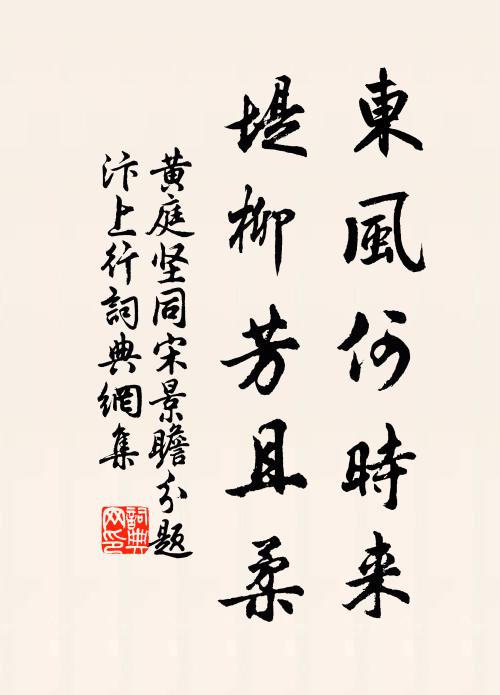 東風何時来
堤柳芳且柔
黄庭坚同宋景瞻分题
汴上行詞典網集
詞典
网印